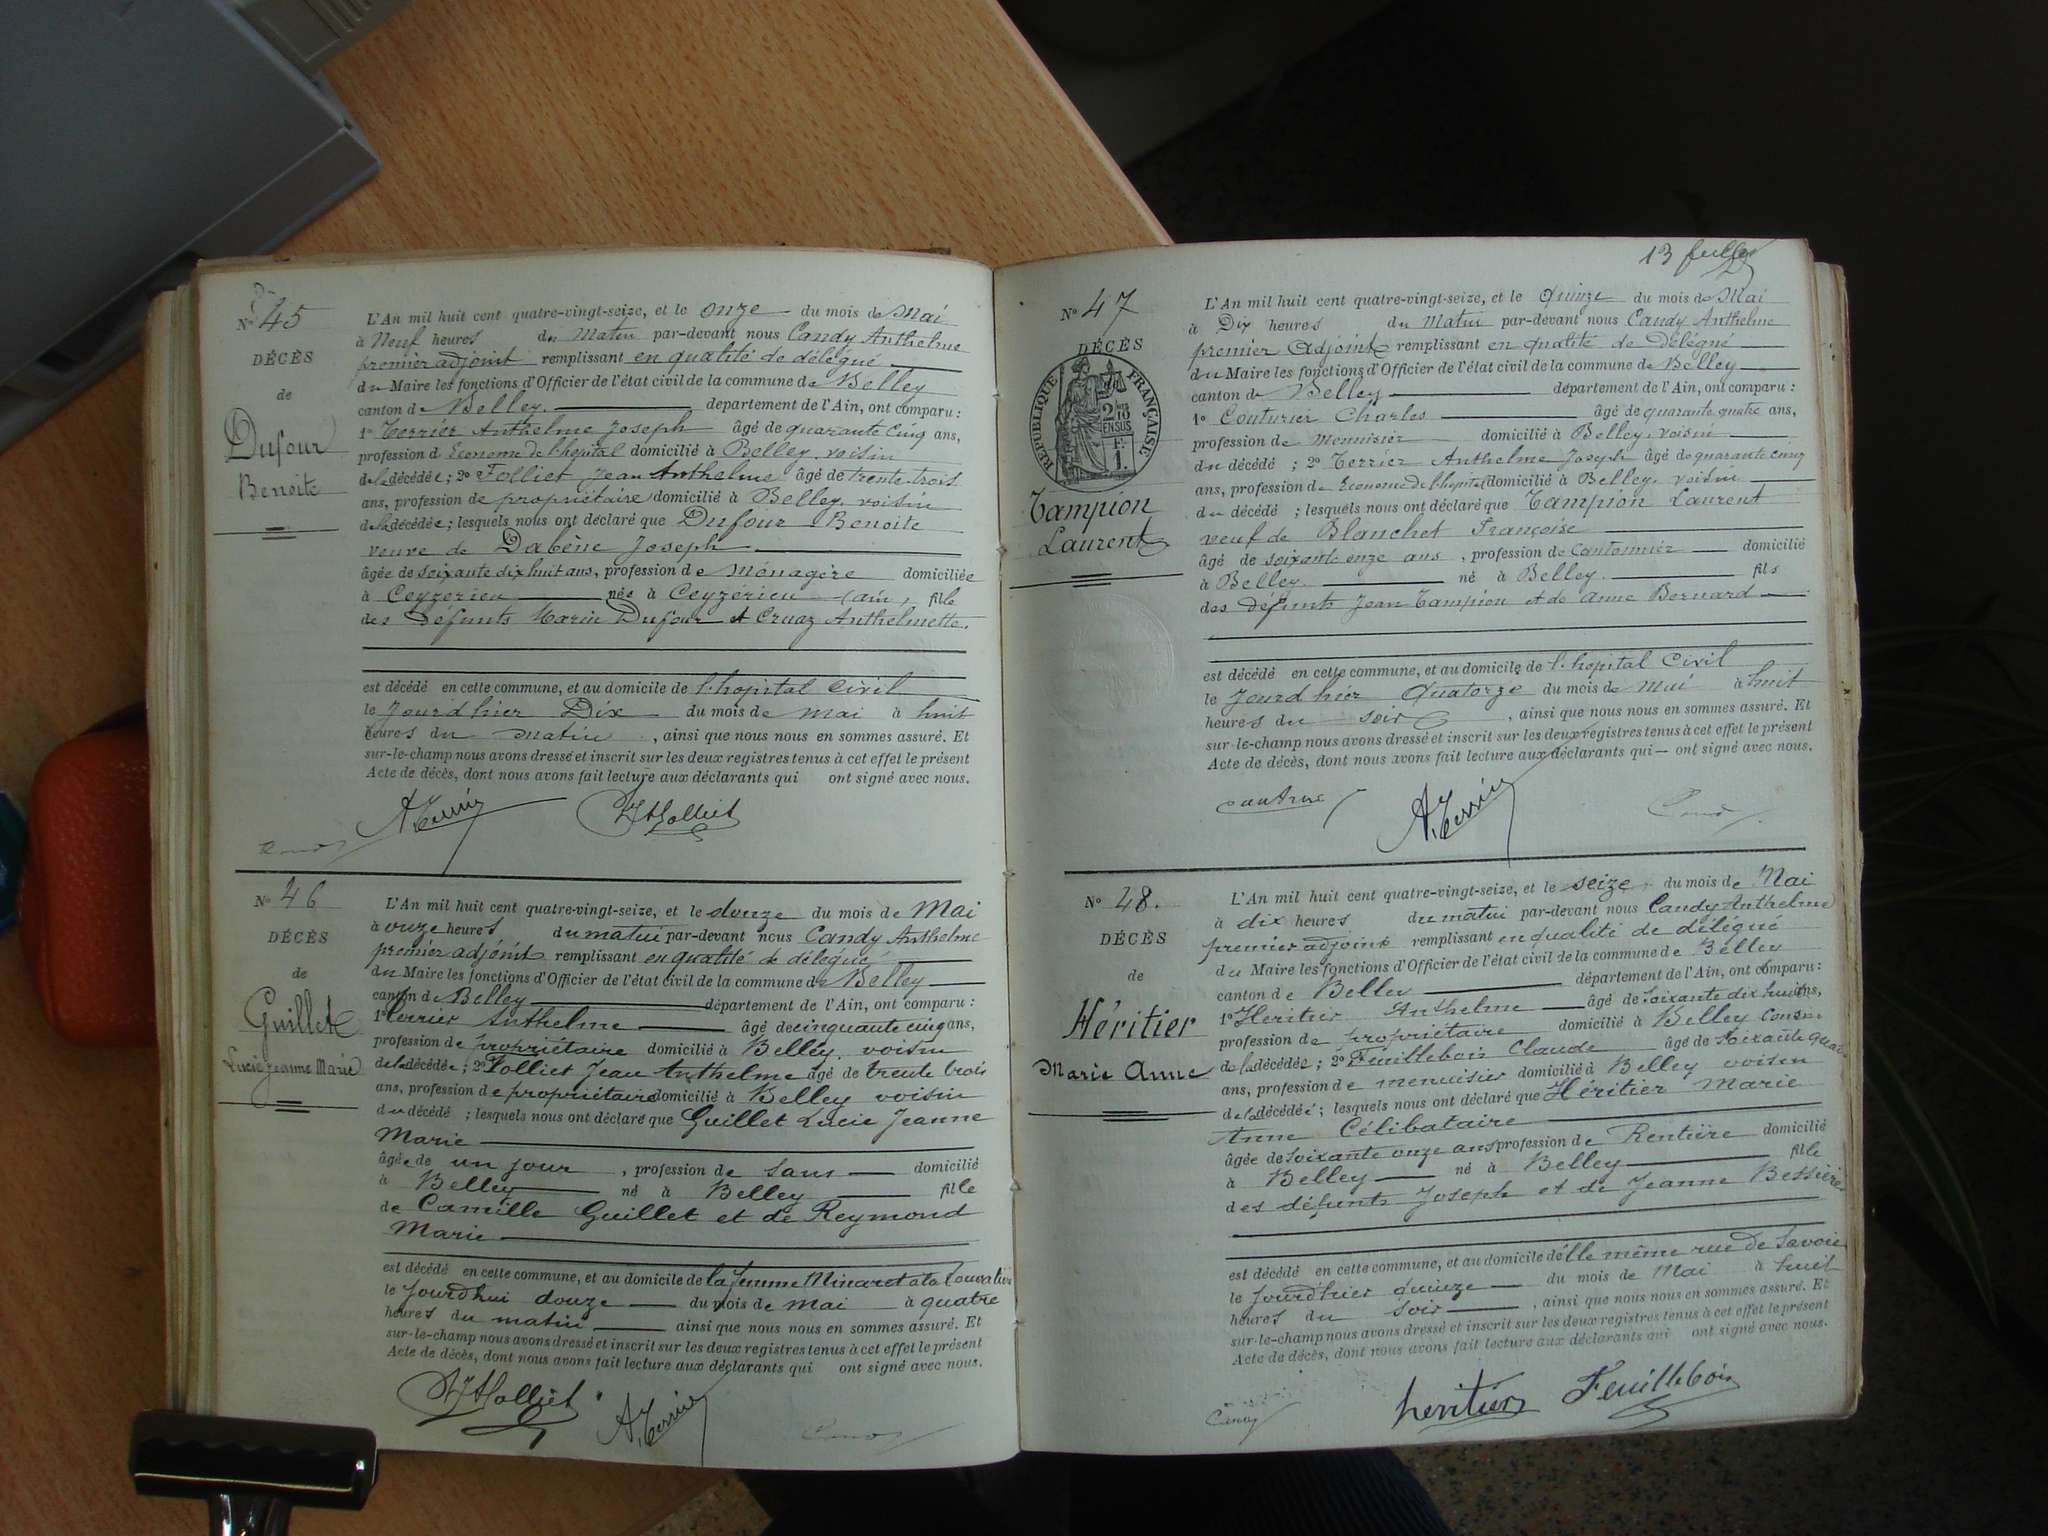 Nº 45
DÉCÈS
de
Dufour
Benoite
L'An mil huit cent quatre-vingt-seize, et le onze du mois de Mai
à Neuf heures du Matin par-devant nous Candy Anthelme
premier adjoint remplissant en qualité de délégué
du Maire les fonctions d'Officier de l'état civil de la commune de Belley
canton de Belley département de l'Ain, ont comparu :
1º Terrier Anthelme Joseph âgé de quarante cinq ans,
profession d'Econome de l'hopital domicilié à Belley, voisin
de la décédée ; 2º Folliet Jean Anthelme âgé de trente trois
ans, profession de propriétaire domicilié à Belley, voisin
de la décédée ; lesquels nous ont déclaré que Dufour Benoite
veuve de Dabène Joseph
âgée de soixante dix huit ans, profession de Ménagère domiciliée
à Ceyzérieu née à Ceyzérieu (ain), fille
des défunts Marin Dufour et Cruaz Anthelmette.
est décédé en cette commune, et au domicile de l'hopital civil
le Jourd'hier Dix du mois de mai à huit
heures du matin, ainsi que nous nous en sommes assuré. Et
sur-le-champ nous avons dressé et inscrit sur les deux registres tenus à cet effet le présent
Acte de décès, dont nous avons fait lecture aux déclarants qui ont signé avec nous.
A. Terrier
Candy
Nº 46
DÉCÈS
de
Guillet
Lucie Jeanne Marie
L'An mil huit cent quatre-vingt-seize, et le douze du mois de Mai
à onze heures du matin par-devant nous Candy Anthelme
premier adjoint remplissant en qualité de délégué
du Maire les fonctions d'Officier de l'état civil de la commune de Belley
canton de Belley département de l'Ain, ont comparu :
1º Terrier Anthelme âgé de cinquante cinq ans,
profession de propriétaire domicilié à Belley, voisin
de la décédée ; 2º Folliet Jean Anthelme âgé de trente trois
ans, profession de propriétaire domicilié à Belley voisin
du décédé ; lesquels nous ont déclaré que Guillet Lucie Jeanne
Marie
âgée de un jour, profession de sans domicilié
à Belley né à Belley fille
de Camille Guillet et de Reymond
Marie
est décédé en cette commune, et au domicile de la femme Minaret
le Jourd'hui douze du mois de mai à quatre
heures du matin ainsi que nous nous en sommes assuré. Et
sur-le-champ nous avons dressé et inscrit sur les deux registres tenus à cet effet le présent
Acte de décès, dont nous avons fait lecture aux déclarants qui ont signé avec nous.
A. Terrier
Candy
13 feuillet
Nº 47
DÉCÈS
de
RÉPUBLIQUE FRANÇAISE
2/10 EN SUS
1 F.
Tampion
Laurent
L'An mil huit cent quatre-vingt-seize, et le Quinze du mois de Mai
à Dix heures du Matin par-devant nous Candy Anthelme
premier Adjoint remplissant en qualité de Délégué
du Maire les fonctions d'Officier de l'état civil de la commune de Belley
canton de Belley département de l'Ain, ont comparu :
1º Couturier Charles âgé de quarante quatre ans,
profession de Menuisier domicilié à Belley, voisin
du décédé ; 2º Terrier Anthelme Joseph âgé de quarante cinq
ans, profession de Econome de l'hopital domicilié à Belley, voisin
du décédé ; lesquels nous ont déclaré que Tampion Laurent
veuf de Blanchet Françoise
âgé de soixante onze ans, profession de Cantonnier domicilié
à Belley né à Belley. fils
des défunts Jean Tampion et de Anne Bernard
est décédé en cette commune, et au domicile de l'hopital Civil
le Jourd'hier Quatorze du mois de mai à huit
heures du soir, ainsi que nous nous en sommes assuré. Et
sur-le-champ nous avons dressé et inscrit sur les deux registres tenus à cet effet le présent
Acte de décès, dont nous avons fait lecture aux déclarants qui ont signé avec nous.
A. Terrier
Candy
Nº 48.
DÉCÈS
de
Héritier
Marie Anne
L'An mil huit cent quatre-vingt-seize, et le seize du mois de Mai
à dix heures du matin par-devant nous Candy Anthelme
premier adjoint remplissant en qualité de délégué
du Maire les fonctions d'Officier de l'état civil de la commune de Belley
canton de Belley département de l'Ain, ont comparu :
1º Héritier Anthelme âgé de soixante dix huit ans,
profession de propriétaire domicilié à Belley cousin
de la décédée ; 2º Feuillebois Claude âgé de soixante quatre
ans, profession de menuisier domicilié à Belley voisin
de la décédée ; lesquels nous ont déclaré que Héritier Marie
Anne Célibataire
âgée de soixante onze ans profession de Rentière domicilié
à Belley né à Belley fille
des défunts Joseph et de Jeanne Bessière
est décédé en cette commune, et au domicile d'elle même rue de Savoie
le Jourd'hier quinze du mois de Mai à huit
heures du soir, ainsi que nous nous en sommes assuré. Et
sur-le-champ nous avons dressé et inscrit sur les deux registres tenus à cet effet le présent
Acte de décès, dont nous avons fait lecture aux déclarants qui ont signé avec nous.
Candy heritier Feuillebois